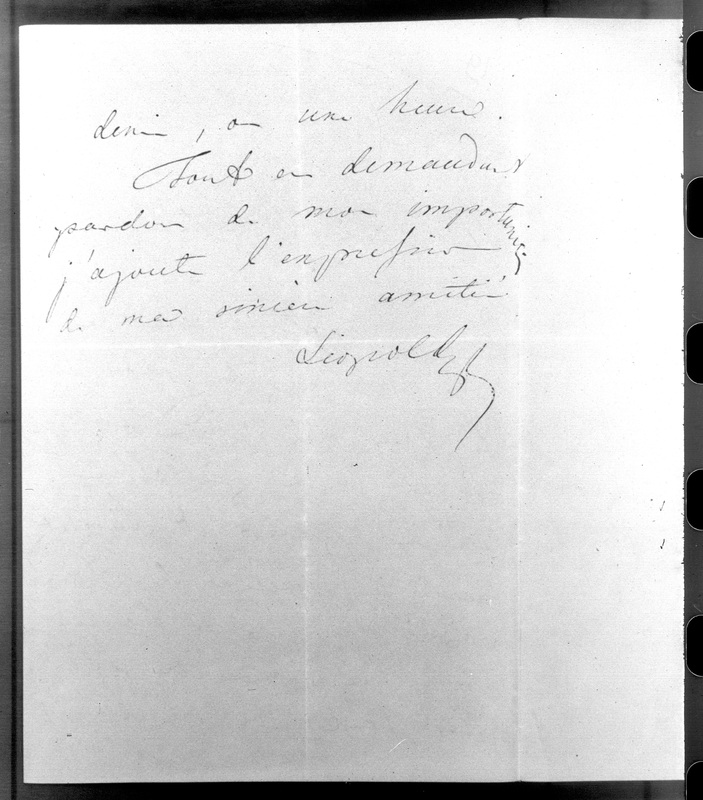 demie, ou une heure.
Tout en demandant
pardon de mon importunité
j'ajoute l'expression
de ma sincère amitié
Léopold